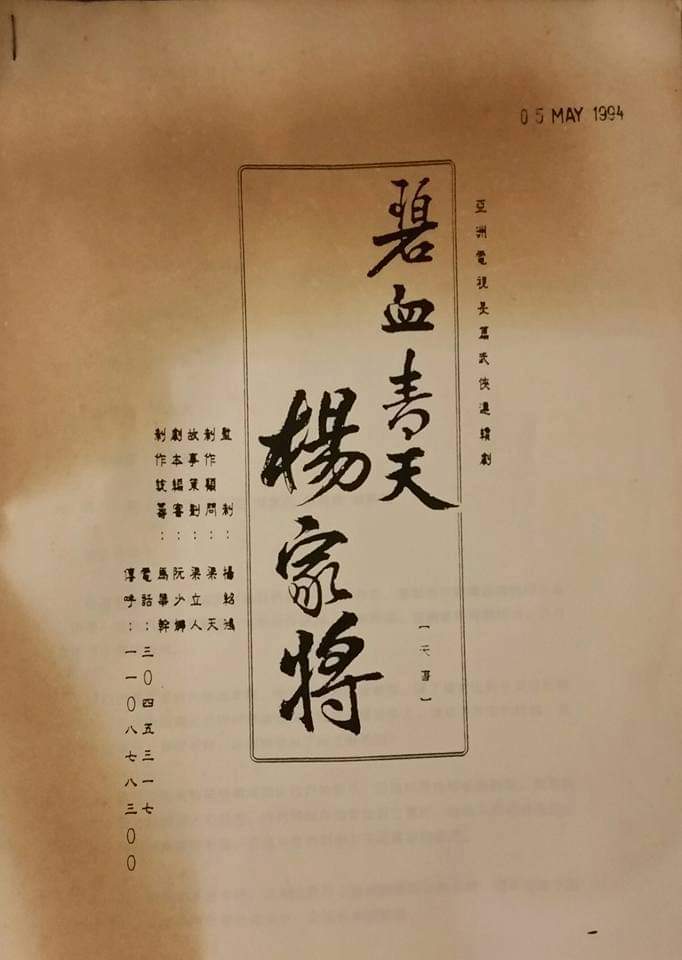 05 MAY 1994
亞洲電視長篇武俠連續劇
碧血青天
楊家將
監制:楊紹鴻
制作顧問:梁天
故事策劃:梁立人
劇本編審:阮少
制作統籌:馬華幹
電話:三〇四五三一七
傳呼:一一〇八七八三〇〇